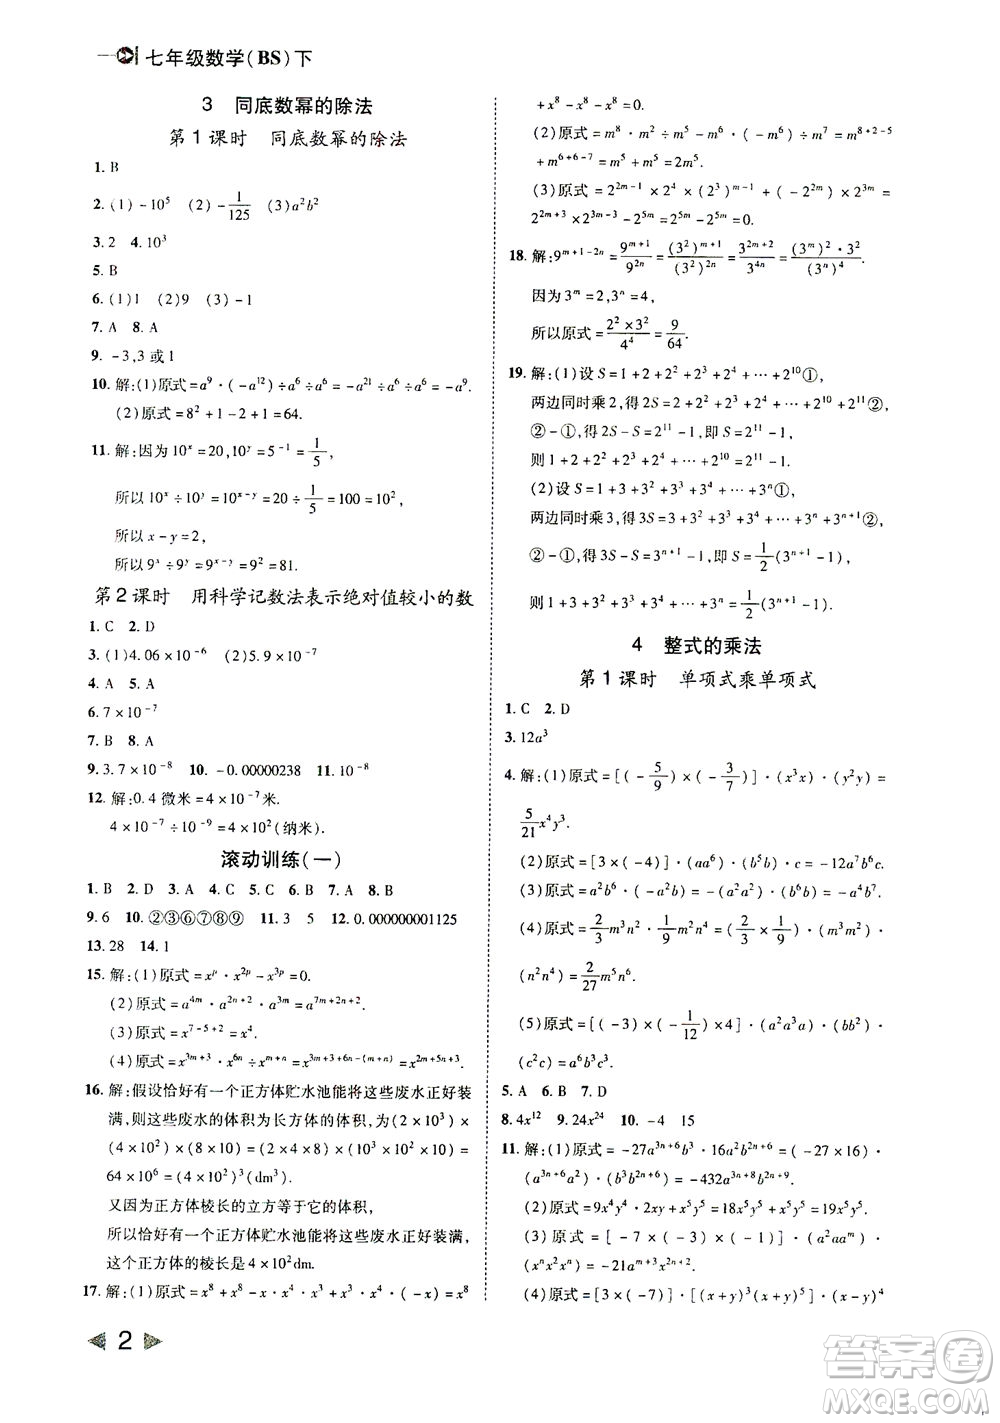 七年级数学(BS)下
3 同底数幂的除法
第1课时 同底数幂的除法
1. B
2. (1)-10⁵ (2)-1/125 (3)a²b²
3. 2 4. 10³
5. B
6. (1)1 (2)9 (3)-1
7. A 8. A
9. -3,3或1
10. 解:(1)原式=a⁹·(-a¹²)÷a⁶÷a⁶=-a²¹÷a⁶÷a⁶=-a⁹.
(2)原式=8²+1-2+1=64.
11. 解:因为10ˣ=20,10ʸ=5⁻¹=1/5,
所以10ˣ÷10ʸ=10ˣ⁻ʸ=20÷1/5=100=10²,
所以x-y=2.
所以9ˣ÷9ʸ=9ˣ⁻ʸ=9²=81.
第2课时 用科学记数法表示绝对值较小的数
1. C 2. D
3. (1)4.06×10⁻⁶ (2)5.9×10⁻⁷
4. A 5. A
6. 7×10⁻⁷
7. B 8. A
9. 3.7×10⁻⁸ 10. -0.00000238 11. 10⁻⁸
12. 解:0.4微米=4×10⁻⁷米.
4×10⁻⁷÷10⁻⁹=4×10²(纳米).
滚动训练(一)
1. B 2. D 3. A 4. C 5. D 6. B 7. B 8. D
9. 6 10. ②③⑥⑦⑧⑨ 11. 3 5 12. 0.000000001125
13. 28 14. 1
15. 解:(1)原式=xᵖ·x²ᵖ-x³ᵖ=x³ᵖ-x³ᵖ=0.
(2)原式=a⁴ᵐ·a²ⁿ⁺²·a³ᵐ=a⁷ᵐ⁺²ⁿ⁺².
(3)原式=x⁷⁻⁵⁺²=x⁴.
(4)原式=x³ᵐ⁺³·x⁶ⁿ÷xᵐ⁺ⁿ=x³ᵐ⁺³⁺⁶ⁿ⁻⁽ᵐ⁺ⁿ⁾=x²ᵐ⁺⁵ⁿ⁺³.
16. 解:假设恰好有一个正方体贮水池能将这些废水正好装
满,则这些废水的体积与正方体贮水池的体积相等.
(4×10²)×(2×10²)×(8×10²)=(2×4×8)×(10²×10²×10²)=
64×10⁶=4³×(10²)³=(4×10²)³(dm³).
又因为正方体棱长的立方等于它的体积,
所以恰好有一个正方体贮水池能将这些废水正好装满,
这个正方体的棱长是4×10²dm.
17. 解:(1)原式=x⁸+x⁸-x·x²·x⁵-x⁸=x⁸+x⁸-x⁸-x⁸
+x⁸-x⁸-x⁸=0.
(2)原式=m⁸·m²÷m⁵-m⁶·(-m⁶)÷m⁷=m⁸⁺²⁻⁵
+m⁶⁺⁶⁻⁷=m⁵+m⁵=2m⁵.
(3)原式=2²ᵐ⁻¹×2⁴×(2³)ᵐ⁻¹+(-2ᵐ)×2³×8ᵐ=
2²ᵐ⁺³×2³ᵐ⁻³-2⁵ᵐ=2⁵ᵐ-2⁵ᵐ=0.
18. 解:9ᵐ⁺¹⁻²ⁿ=9ᵐ⁺¹/9²ⁿ=(3²)ᵐ⁺¹/(3²)²ⁿ=3²ᵐ⁺²/3⁴ⁿ=(3ᵐ)²·3²/(3ⁿ)⁴.
因为3ᵐ=2,3ⁿ=4,
所以原式=2²×3²/4⁴=9/64.
19. 解:(1)设S=1+2+2²+2³+2⁴+…+2¹⁰①,
两边同时乘2,得2S=2+2²+2³+2⁴+…+2¹⁰+2¹¹②,
②-①,得2S-S=2¹¹-1,即S=2¹¹-1,
则1+2+2²+2³+2⁴+…+2¹⁰=2¹¹-1.
(2)设S=1+3+3²+3³+3⁴+…+3ⁿ①,
两边同时乘3,得3S=3+3²+3³+3⁴+…+3ⁿ+3ⁿ⁺¹②,
②-①,得3S-S=3ⁿ⁺¹-1,即S=1/2(3ⁿ⁺¹-1),
则1+3+3²+3³+3⁴+…+3ⁿ=1/2(3ⁿ⁺¹-1).
4 整式的乘法
第1课时 单项式乘单项式
1. C 2. D
3. 12a³
4. 解:(1)原式=[(-5/9)×(-3/7)]·(x³x)·(y²y)=
5/21x⁴y³.
(2)原式=[3×(-4)]·(aa⁶)·(b⁵b)·c=-12a⁷b⁶c.
(3)原式=a²b⁵·(-4a⁶b⁶)=-4·(a²a⁶)·(b⁵b⁶)=-4a⁸b¹¹.
(4)原式=2/3m³n²·1/9m²n⁴=(2/3×1/9)·(m³m²)·
(n²n⁴)=2/27m⁵n⁶.
(5)原式=[(-3)×(-1/12)×4]·(a²a³a)·(bb²)·
(c³c)=a⁶b³c⁴.
5. A 6. B 7. D
8. 4x¹² 9. 24x²⁴ 10. -4 15
11. 解:(1)原式=-27a³ⁿ⁺⁶b³·16a²b²ⁿ⁺²=(-27×16)·
(a³ⁿ⁺⁶a²)·(b³b²ⁿ⁺²)=-432a³ⁿ⁺⁸b²ⁿ⁺⁵.
(2)原式=9x⁴y⁴·2xy+x⁵y⁵=18x⁵y⁵+x⁵y⁵=19x⁵y⁵.
(3)原式=[-7×(-3)×(-1)]·(a²aaᵐ)·
(xⁿx²xⁿ)=-21aᵐ⁺³x²ⁿ⁺².
(4)原式=[3×(-7)]·[(x+y)³(x+y)]·
2
答案圈
MXQE.COM